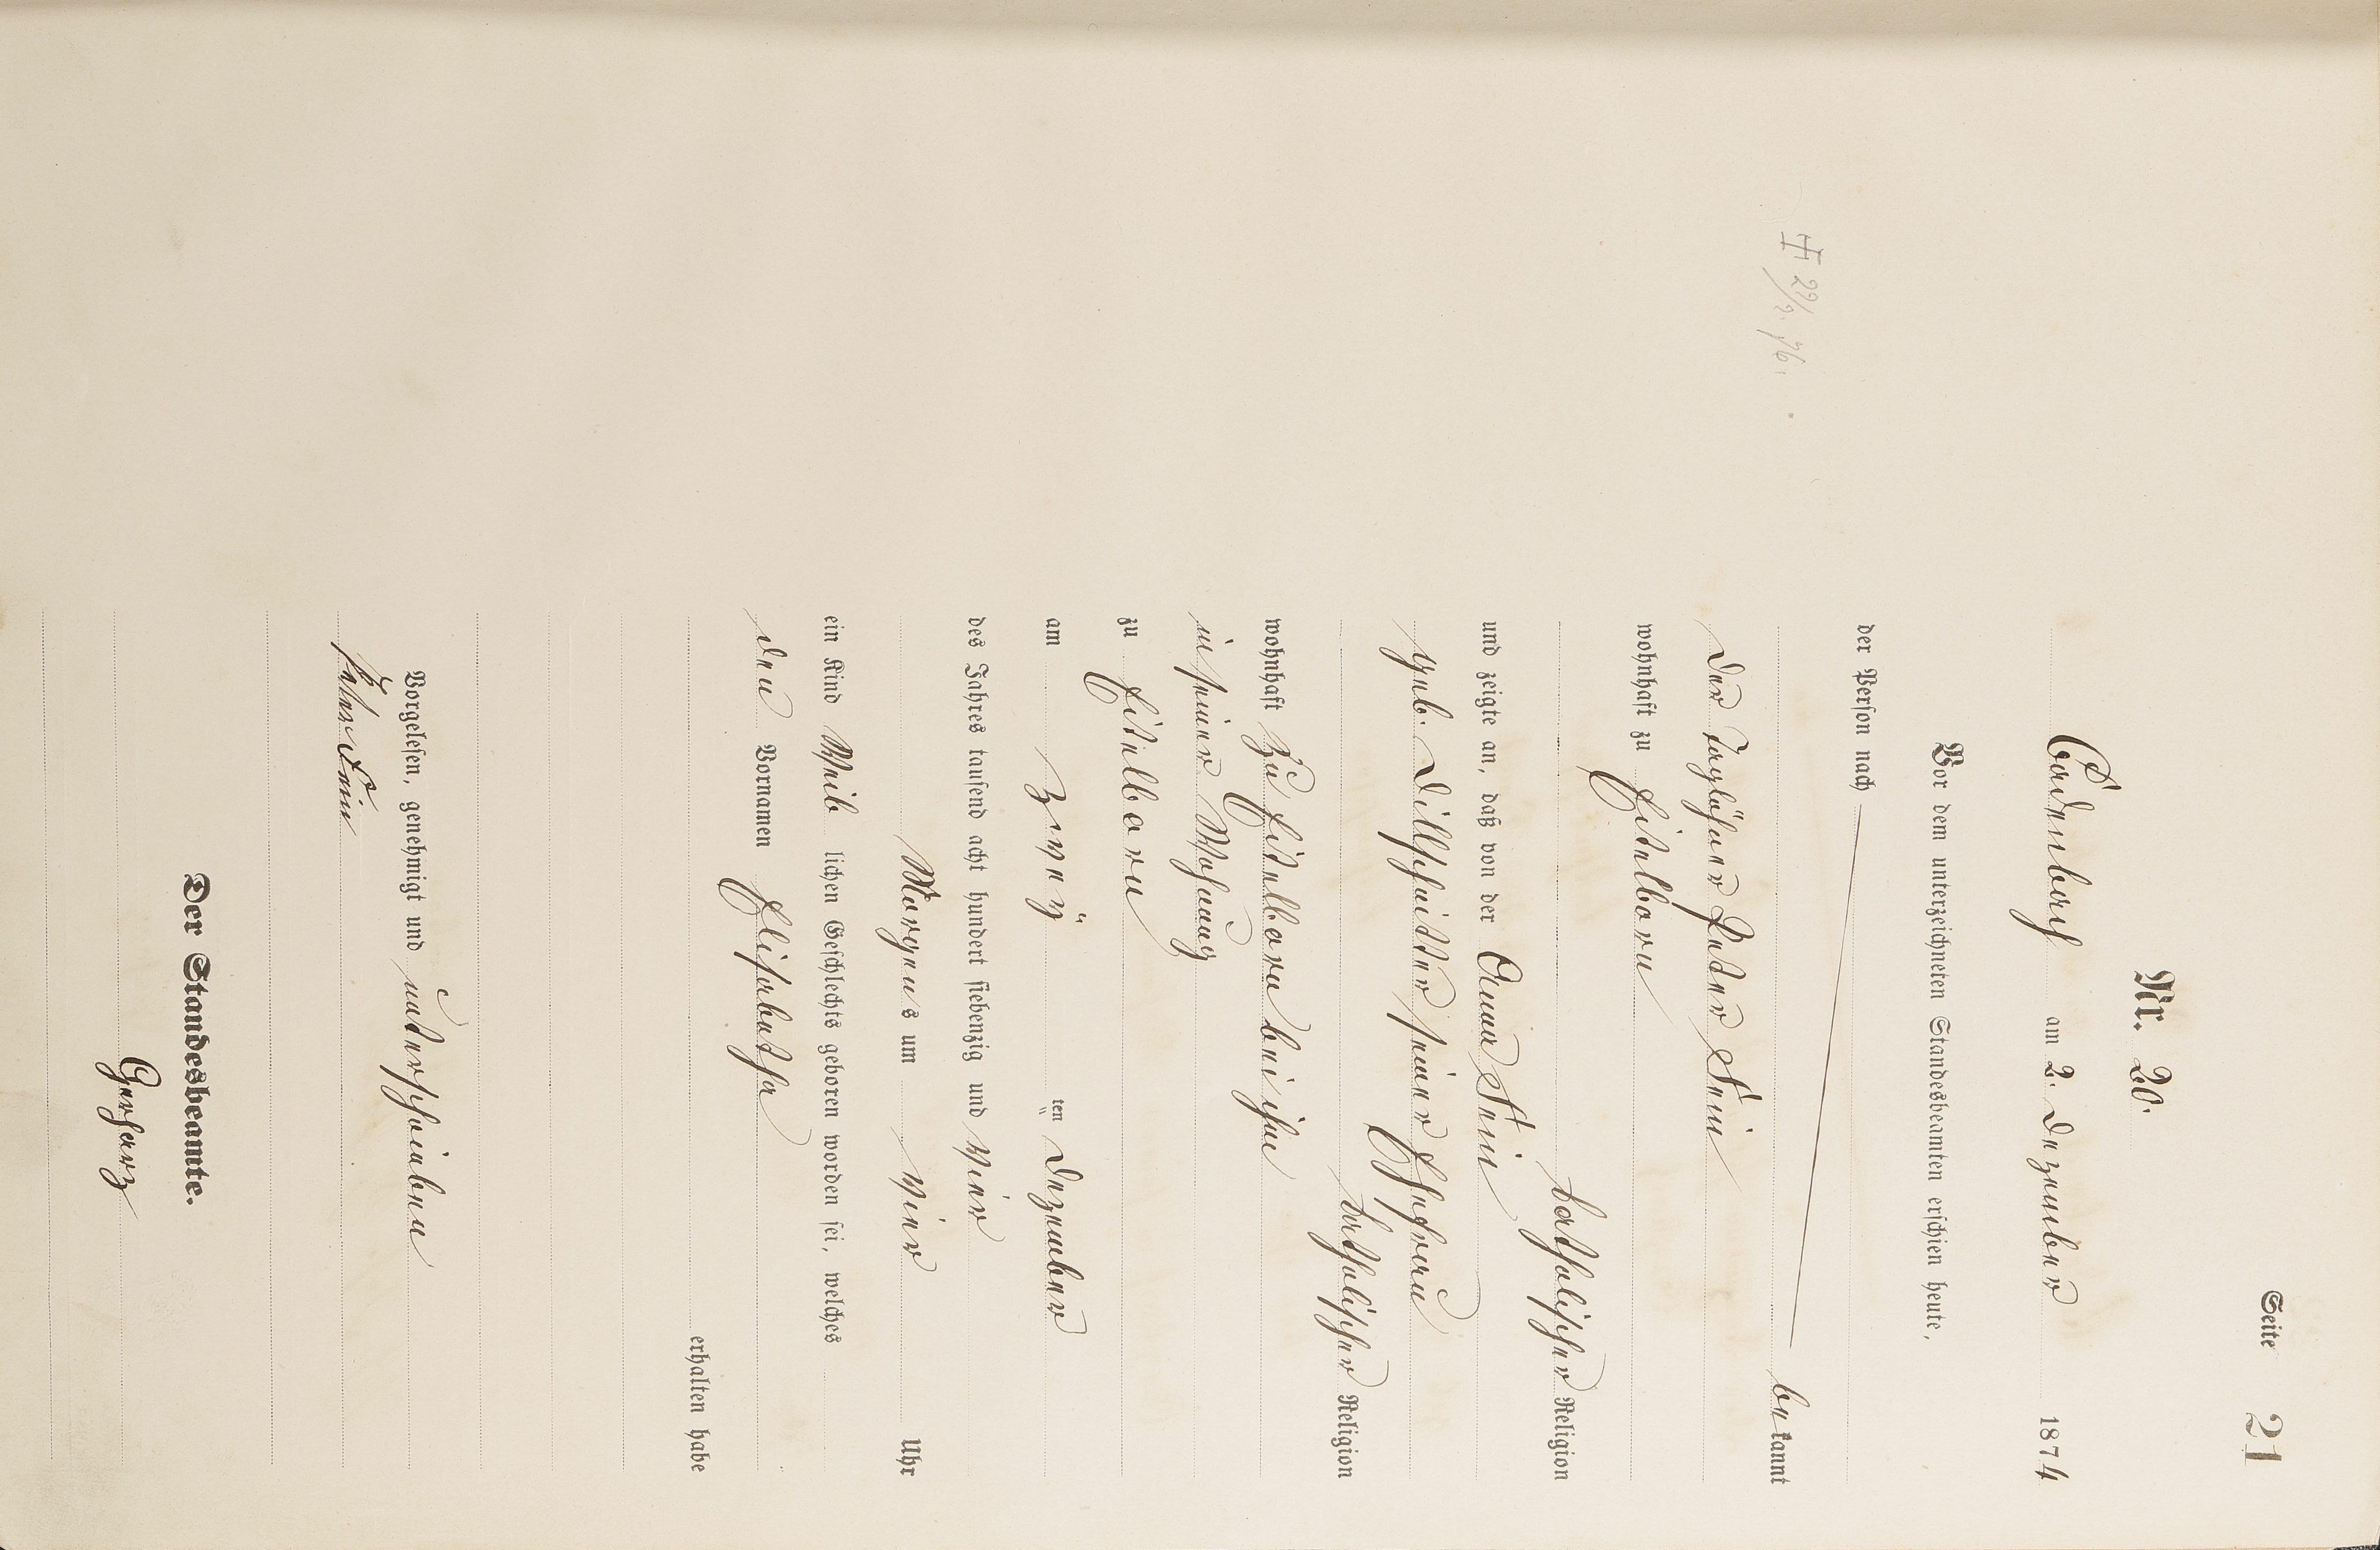 Seite 21
Nr. 20.
Cadenbach am 2. Dezember 1874
Vor dem unterzeichneten Standesbeamten erschien heute,
der Person nach
bekannt
der Taglöhner Peter Stein
wohnhaft zu Eitelborn
katholischer Religion
und zeigte an, daß von der Anna Stein
geb. Dillschnitter seiner Ehefrau
katholischer Religion
wohnhaft zu Eitelborn bei ihm
in seiner Wohnung
zu Eitelborn
am Zwey ten Dezember
des Jahres tausend acht hundert siebenzig und Vier
Morgens um Vier Uhr
ein Kind Weib lichen Geschlechts geboren worden sei, welches
den Vornamen Elisabetha
erhalten habe
Vorgelesen, genehmigt und unterschrieben
Peter Stein
Der Standesbeamte.
Gerharz